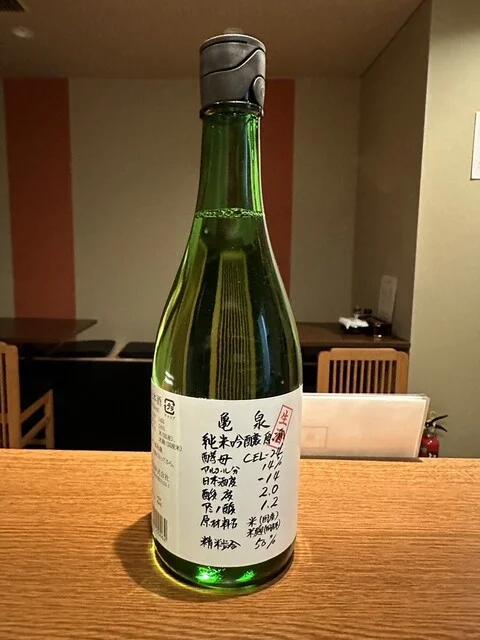 亀泉
生
純米吟醸原酒
酵母 CEL-24
アルコール分 14%
日本酒度 -14
酸度 2.0
アミノ酸 1.2
原材料名 米(国産)
米麹(国産米)
精米歩合 50%